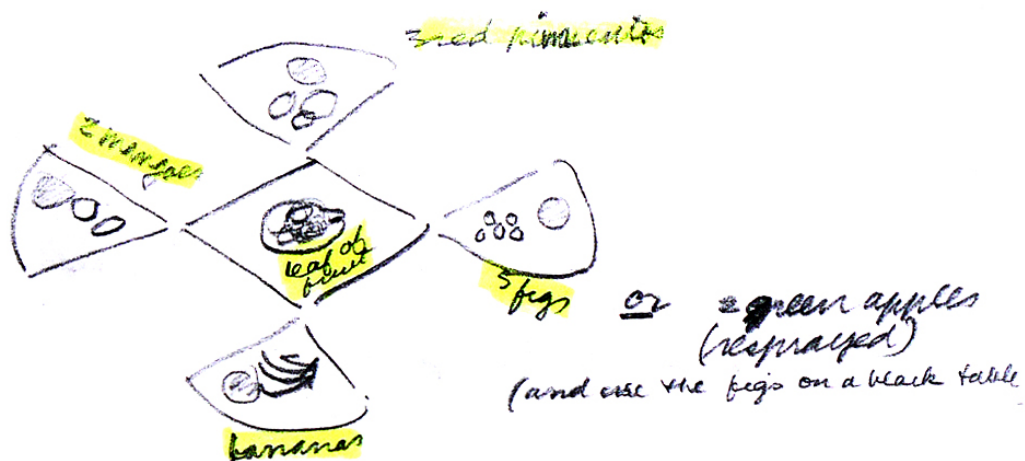 3 red pimentos
2 mangoes
leaf of
fruit
5 figs
or 2 green apples
(resprayed)
(and use the figs on a black table
bananas